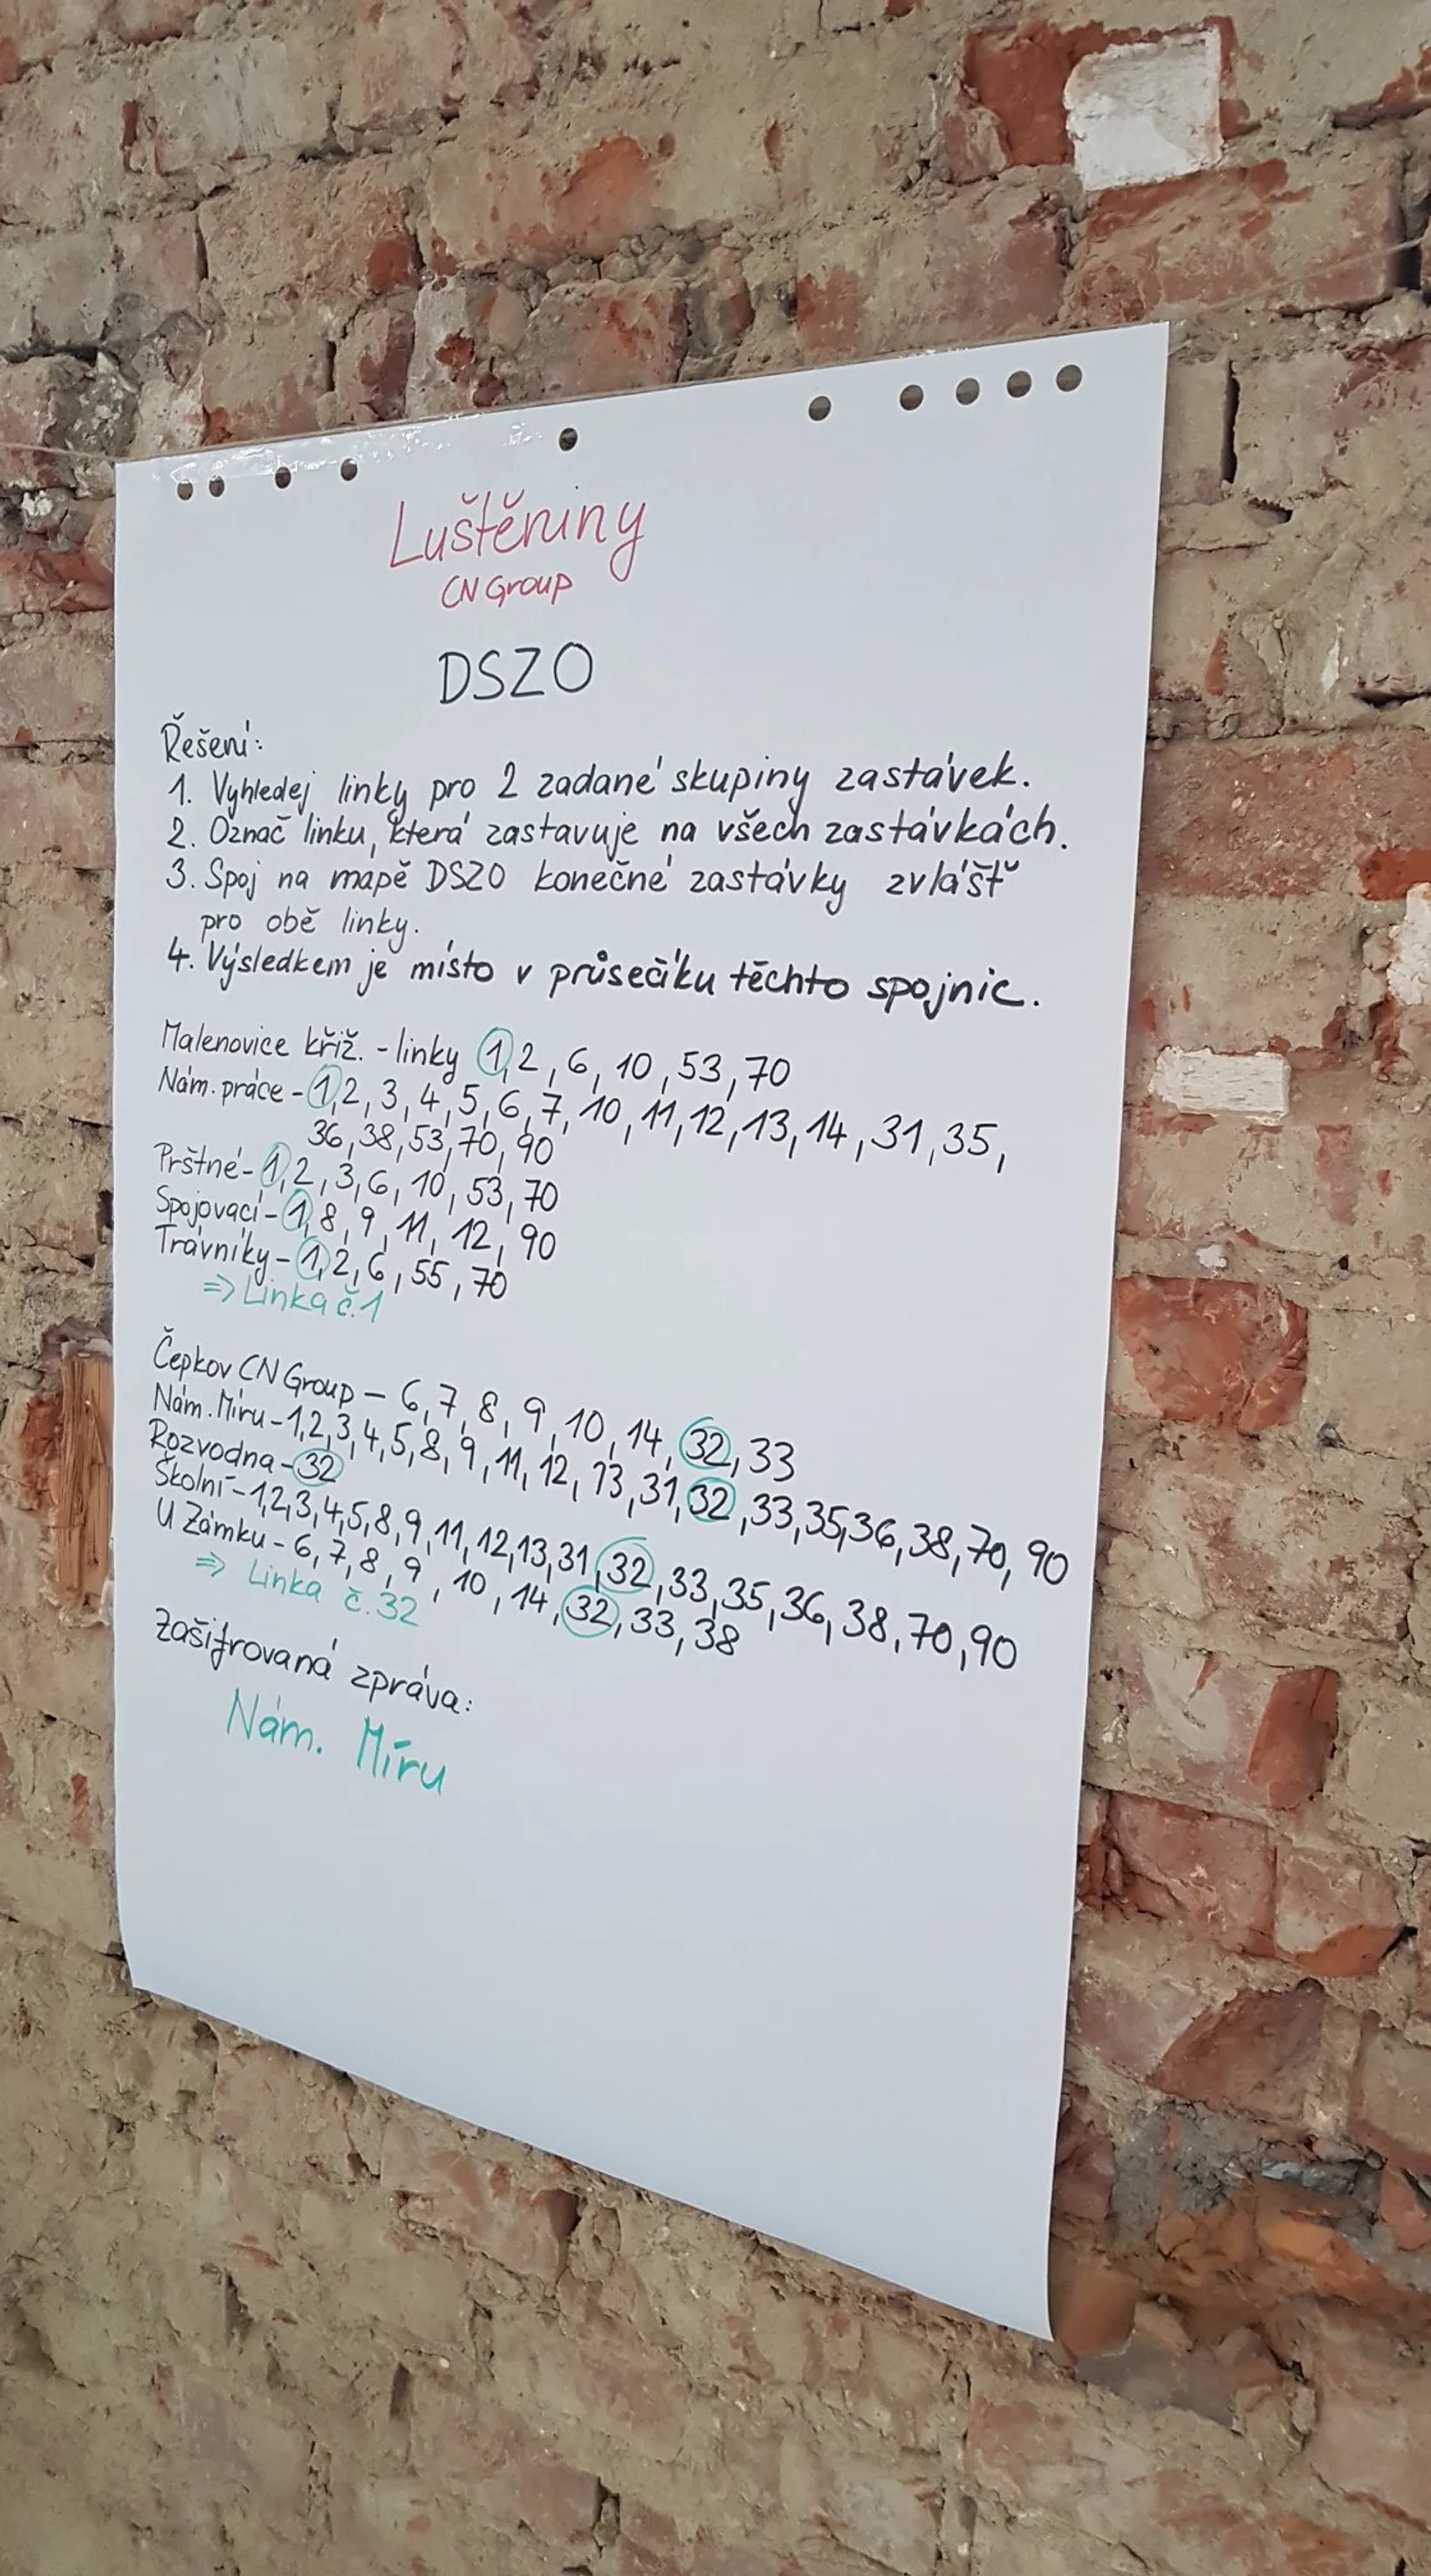 Luštěniny
CN Group
DSZO
Řešení:
1. Vyhledej linky pro 2 zadané skupiny zastávek.
2. Označ linku, která zastavuje na všech zastávkách.
3. Spoj na mapě DSZO konečné zastávky zvlášť
pro obě linky.
4. Výsledkem je místo v průsečíku těchto spojnic.
Malenovice křiž. - linky 1, 2, 6, 10, 53, 70
Nám. práce - 1, 2, 3, 4, 5, 6, 7, 10, 11, 12, 13, 14, 31, 35,
36, 38, 53, 70, 90
Prštné - 1, 2, 3, 6, 10, 53, 70
Spojovací - 1, 8, 9, 11, 12, 90
Trávníky - 1, 2, 6, 55, 70
⇒ Linka č. 1
Čepkov CN Group - 6, 7, 8, 9, 10, 14, 32, 33
Nám. Míru - 1, 2, 3, 4, 5, 8, 9, 11, 12, 13, 31, 32, 33, 35, 36, 38, 70, 90
Rozvodna - 32
Školní - 1, 2, 3, 4, 5, 8, 9, 11, 12, 13, 31, 32, 33, 35, 36, 38, 70, 90
U Zámku - 6, 7, 8, 9, 10, 14, 32, 33, 38
⇒ Linka č. 32
Zašifrovaná zpráva:
Nám. Míru